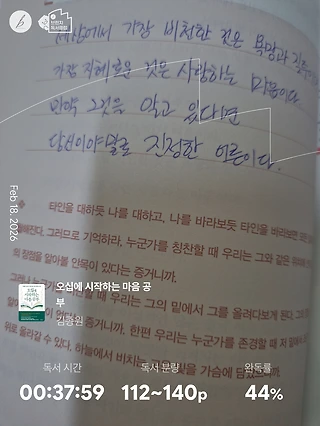 세상에서 가장 비천한 것은 욕망과 질투
가장 지혜로운 것은 사랑하는 마음이다
만약 그것을 알고 있다면
당신이야말로 진정한 어른이다.
Feb 18, 2026
타인을 대하듯 나를 대하고, 나를 바라보듯 타인을 바라보면
해진다. 그러므로 기억하라. 누군가를 칭찬할 때 우리는 그와 같은
의 장점을 알아볼 안목이 있다는 증거니까.
할 때 우리는 그의 밑에서 그를 올려다보게 된다.
증거니까. 한편 우리는 누군가를 존경할 때 저 밑에서
위로 올라갈 수 있다. 하늘에서 비치는 가슴에 담았으니까.
오십에 시작하는 마음 공
부
김종원
독서 시간 독서 분량 완독률
00:37:59 112~140p 44%